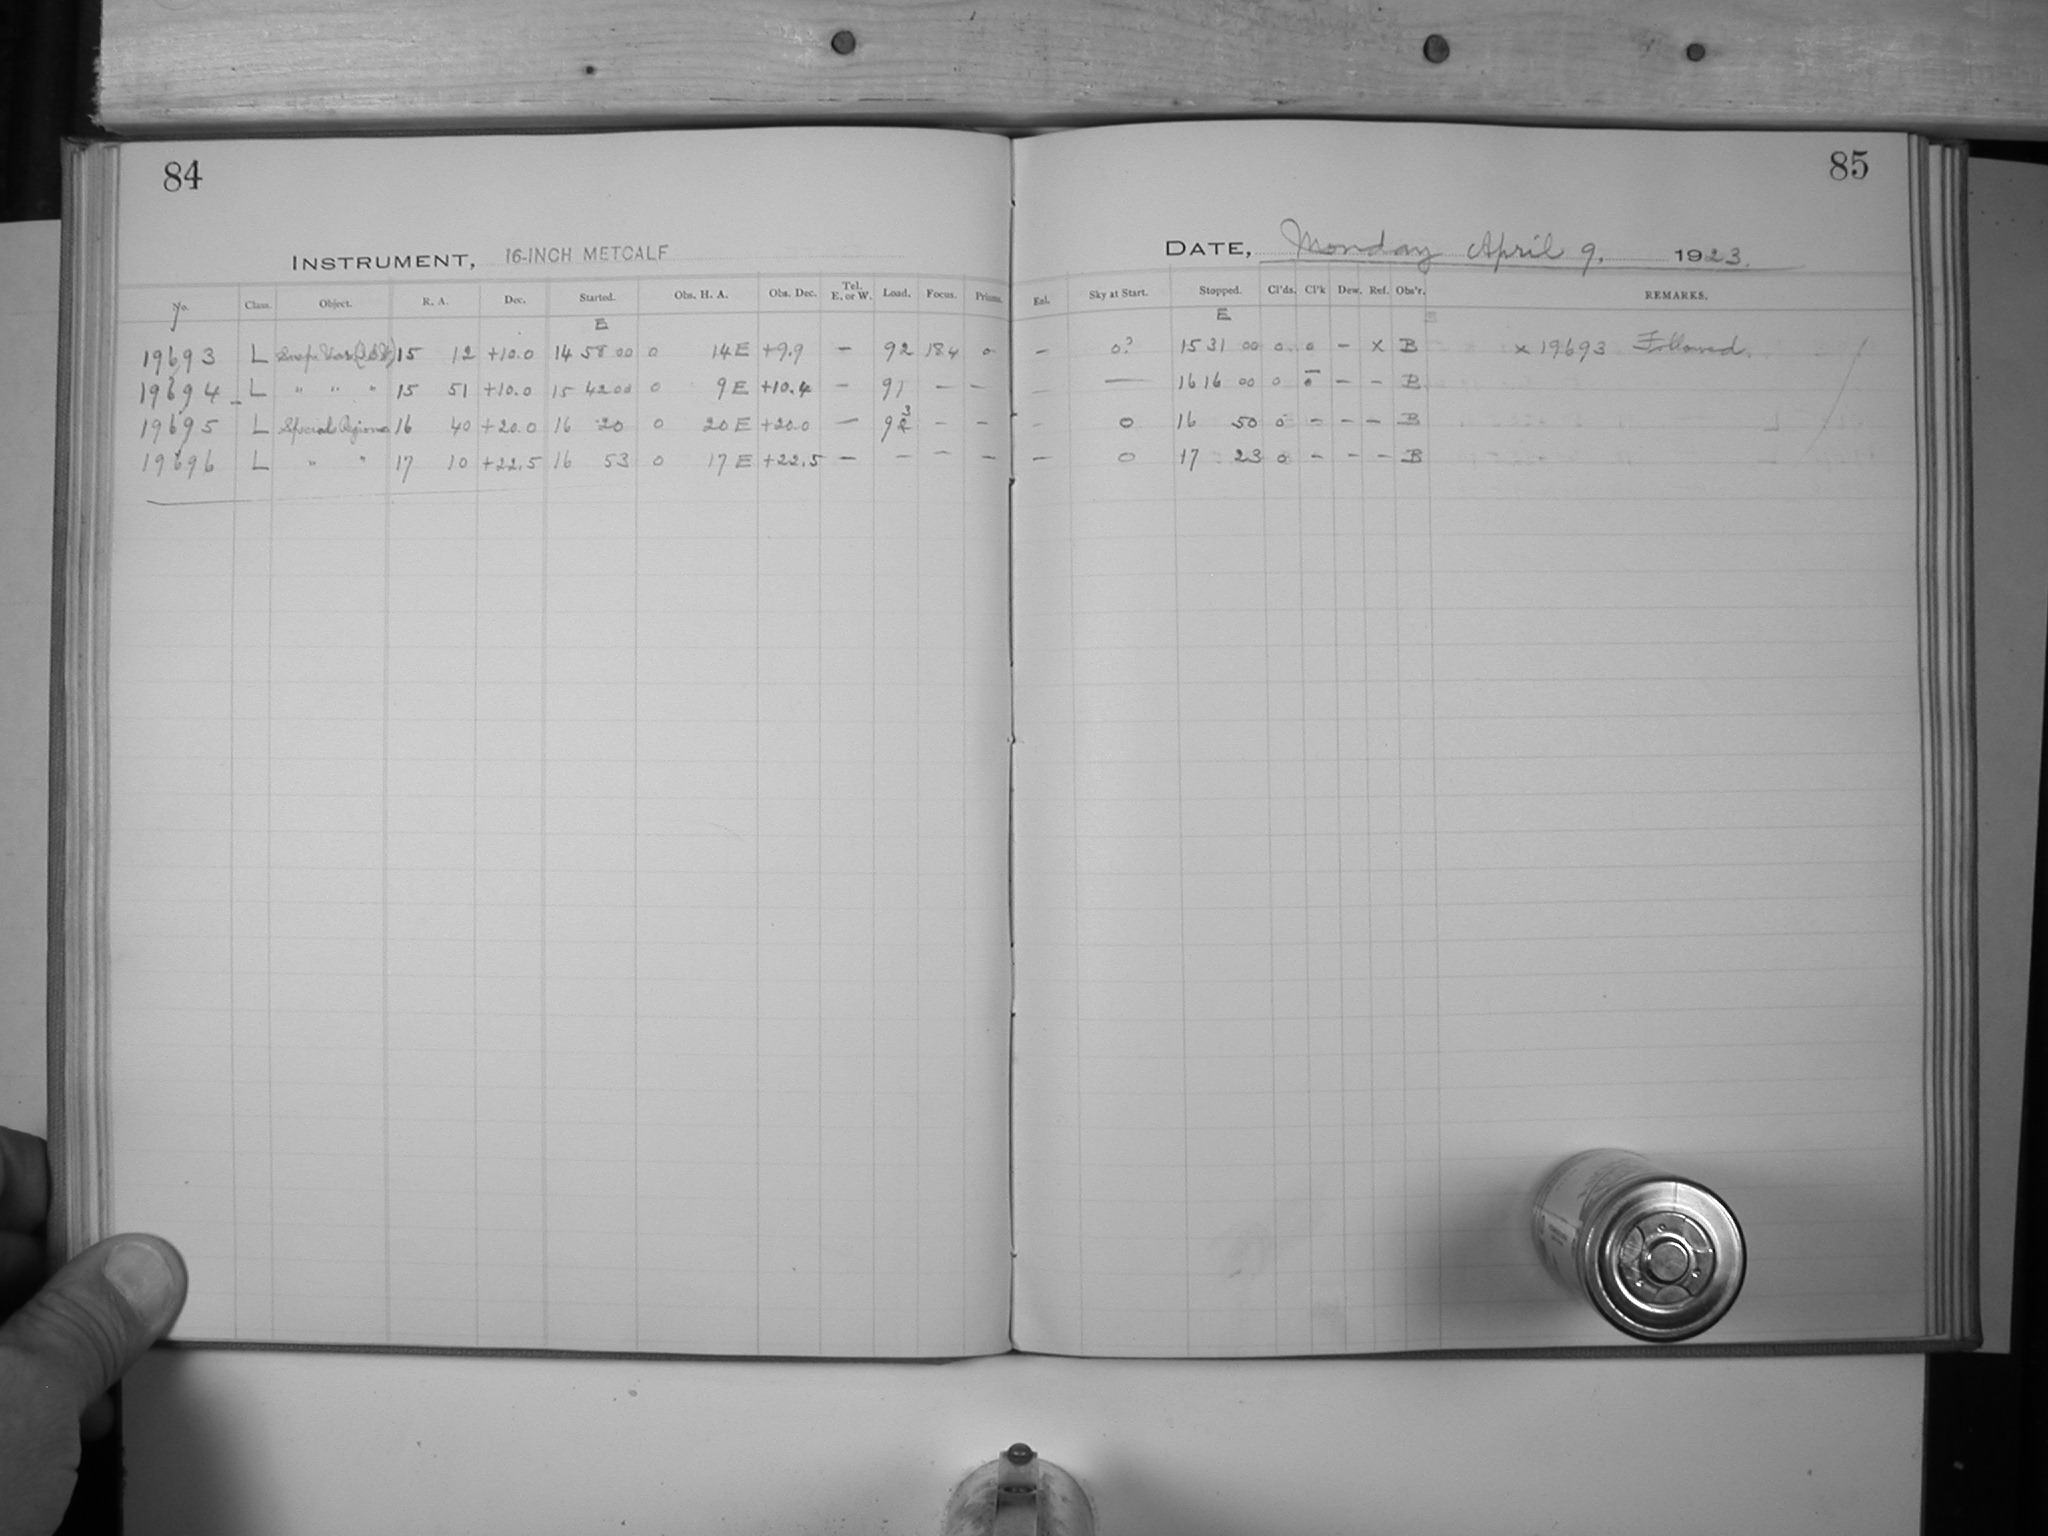 84
85
INSTRUMENT, 16-INCH METCALF
DATE, Monday April 9. 1923.
No. Class. Object. R. A. Dec. Started. Obs. H. A. Obs. Dec. Tel. E. or W. Load. Focus. Prisms. Sky at Start. Stopped. Cl'ds. Cl'k Dew. Ref. Obs'r. REMARKS.
E E
19693 L 15 12 +10.0 14 58 00 0 14 E +9.9 – 92 18.4 0 – 0? 15 31 00 0 0 – X B x 19693 Followed.
19694 L " " " 15 51 +10.0 15 42 00 0 9 E +10.4 – 91 – – – — 16 16 00 0 0 – – B
19695 L Special Regions 16 40 +20.0 16 20 0 20 E +20.0 – 93 – – – 0 16 50 0 – – – B
19696 L " " 17 10 +22.5 16 53 0 17 E +22.5 – – – – – 0 17 23 0 – – – B